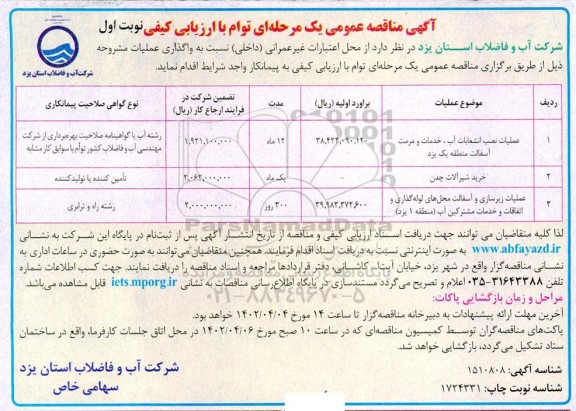 آگهی مناقصه عمومی یک مرحله‌ای توام با ارزیابی کیفی نوبت اول
شرکت آب و فاضلاب استان یزد در نظر دارد از محل اعتبارات غیرعمرانی (داخلی) نسبت به واگذاری عملیات مشروحه
ذیل از طریق برگزاری مناقصه عمومی یک مرحله‌ای توام با ارزیابی کیفی به پیمانکار واجد شرایط اقدام نماید.
شرکت آب و فاضلاب استان یزد
ردیف موضوع عملیات برآورد اولیه (ریال) مدت تضمین شرکت در فرایند ارجاع کار (ریال) نوع گواهی صلاحیت پیمانکاری
۱ عملیات نصب انشعابات آب ، خدمات و مرمت آسفالت منطقه یک یزد ۳۸,۴۲۲,۰۹۰,۱۲۰ ۱۲ ماه ۱,۹۲۱,۱۰۰,۰۰۰ رشته آب یا گواهینامه صلاحیت بهره‌برداری از شرکت مهندسی آب و فاضلاب کشور توأم با سوابق کار مشابه
۲ خرید شیرآلات چدن - یک ماه ۲,۰۶۲,۰۰۰,۰۰۰ تأمین کننده یا تولیدکننده
۳ عملیات زیرسازی و آسفالت محل‌های لوله‌گذاری و اتفاقات و خدمات مشترکین آب (منطقه ۱ یزد) ۳۹,۹۸۳,۳۷۲,۶۰۰ ۳۰۰ روز ۲,۰۰۰,۰۰۰,۰۰۰ رشته راه و ترابری
لذا کلیه متقاضیان می توانند جهت دریافت اسناد ارزیابی کیفی و مناقصه از تاریخ انتشار آگهی پس از ثبت‌نام در پایگاه این شرکت به نشانی
www.abfayazd.ir به صورت اینترنتی نسبت به دریافت اسناد اقدام فرمایند. همچنین متقاضیان می‌توانند به صورت حضوری در ساعات اداری به
نشانی مناقصه‌گزار واقع در شهر یزد، خیابان آیت‌ا... کاشانی، دفتر قراردادها مراجعه و اسناد مناقصه را دریافت نمایند. جهت کسب اطلاعات شماره
تلفن ۳۱۶۴۳۳۸۸-۰۳۵ اعلام و تصریح می‌گردد مستندسازی در پایگاه اطلاع‌رسانی مناقصات به نشانی iets.mporg.ir قابل مشاهده می‌باشد.
مراحل و زمان بازگشایی پاکات:
آخرین مهلت ارائه پیشنهادات به دبیرخانه مناقصه‌گزار تا ساعت ۱۴ مورخ ۱۴۰۲/۰۴/۰۴ خواهد بود.
پاکت‌های مناقصه‌گران توسط کمیسیون مناقصه‌ای که در ساعت ۱۰ صبح مورخ ۱۴۰۲/۰۴/۰۶ در محل اتاق جلسات کارفرما، واقع در ساختمان
ستاد تشکیل می‌گردد، بازگشایی خواهد شد.
شناسه آگهی: ۱۵۱۰۸۰۸
شناسه نوبت چاپ: ۱۷۲۴۳۳۱
شرکت آب و فاضلاب استان یزد
سهامی خاص
۰۲۱-۸۸۳۴۹۶۷۰-۵